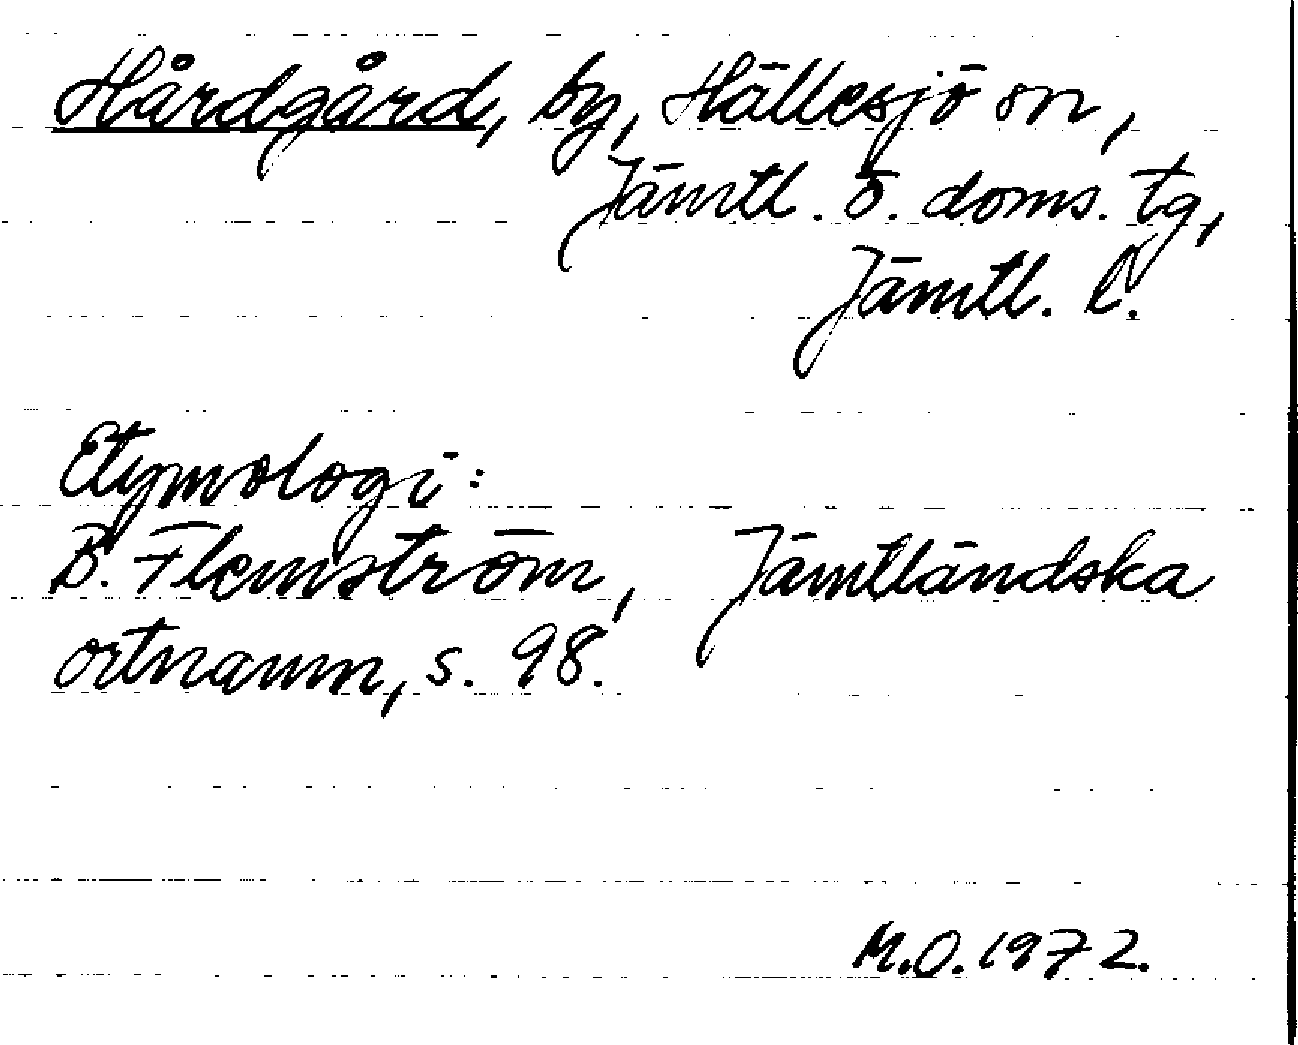 Hårdgård, by, Hällesjö sn,
Jämtl. ö. doms. tg,
Jämtl. l.
Etymologi:
B. Flemström, Jämtländska
ortnamn, s. 98.
M.O. 1972.